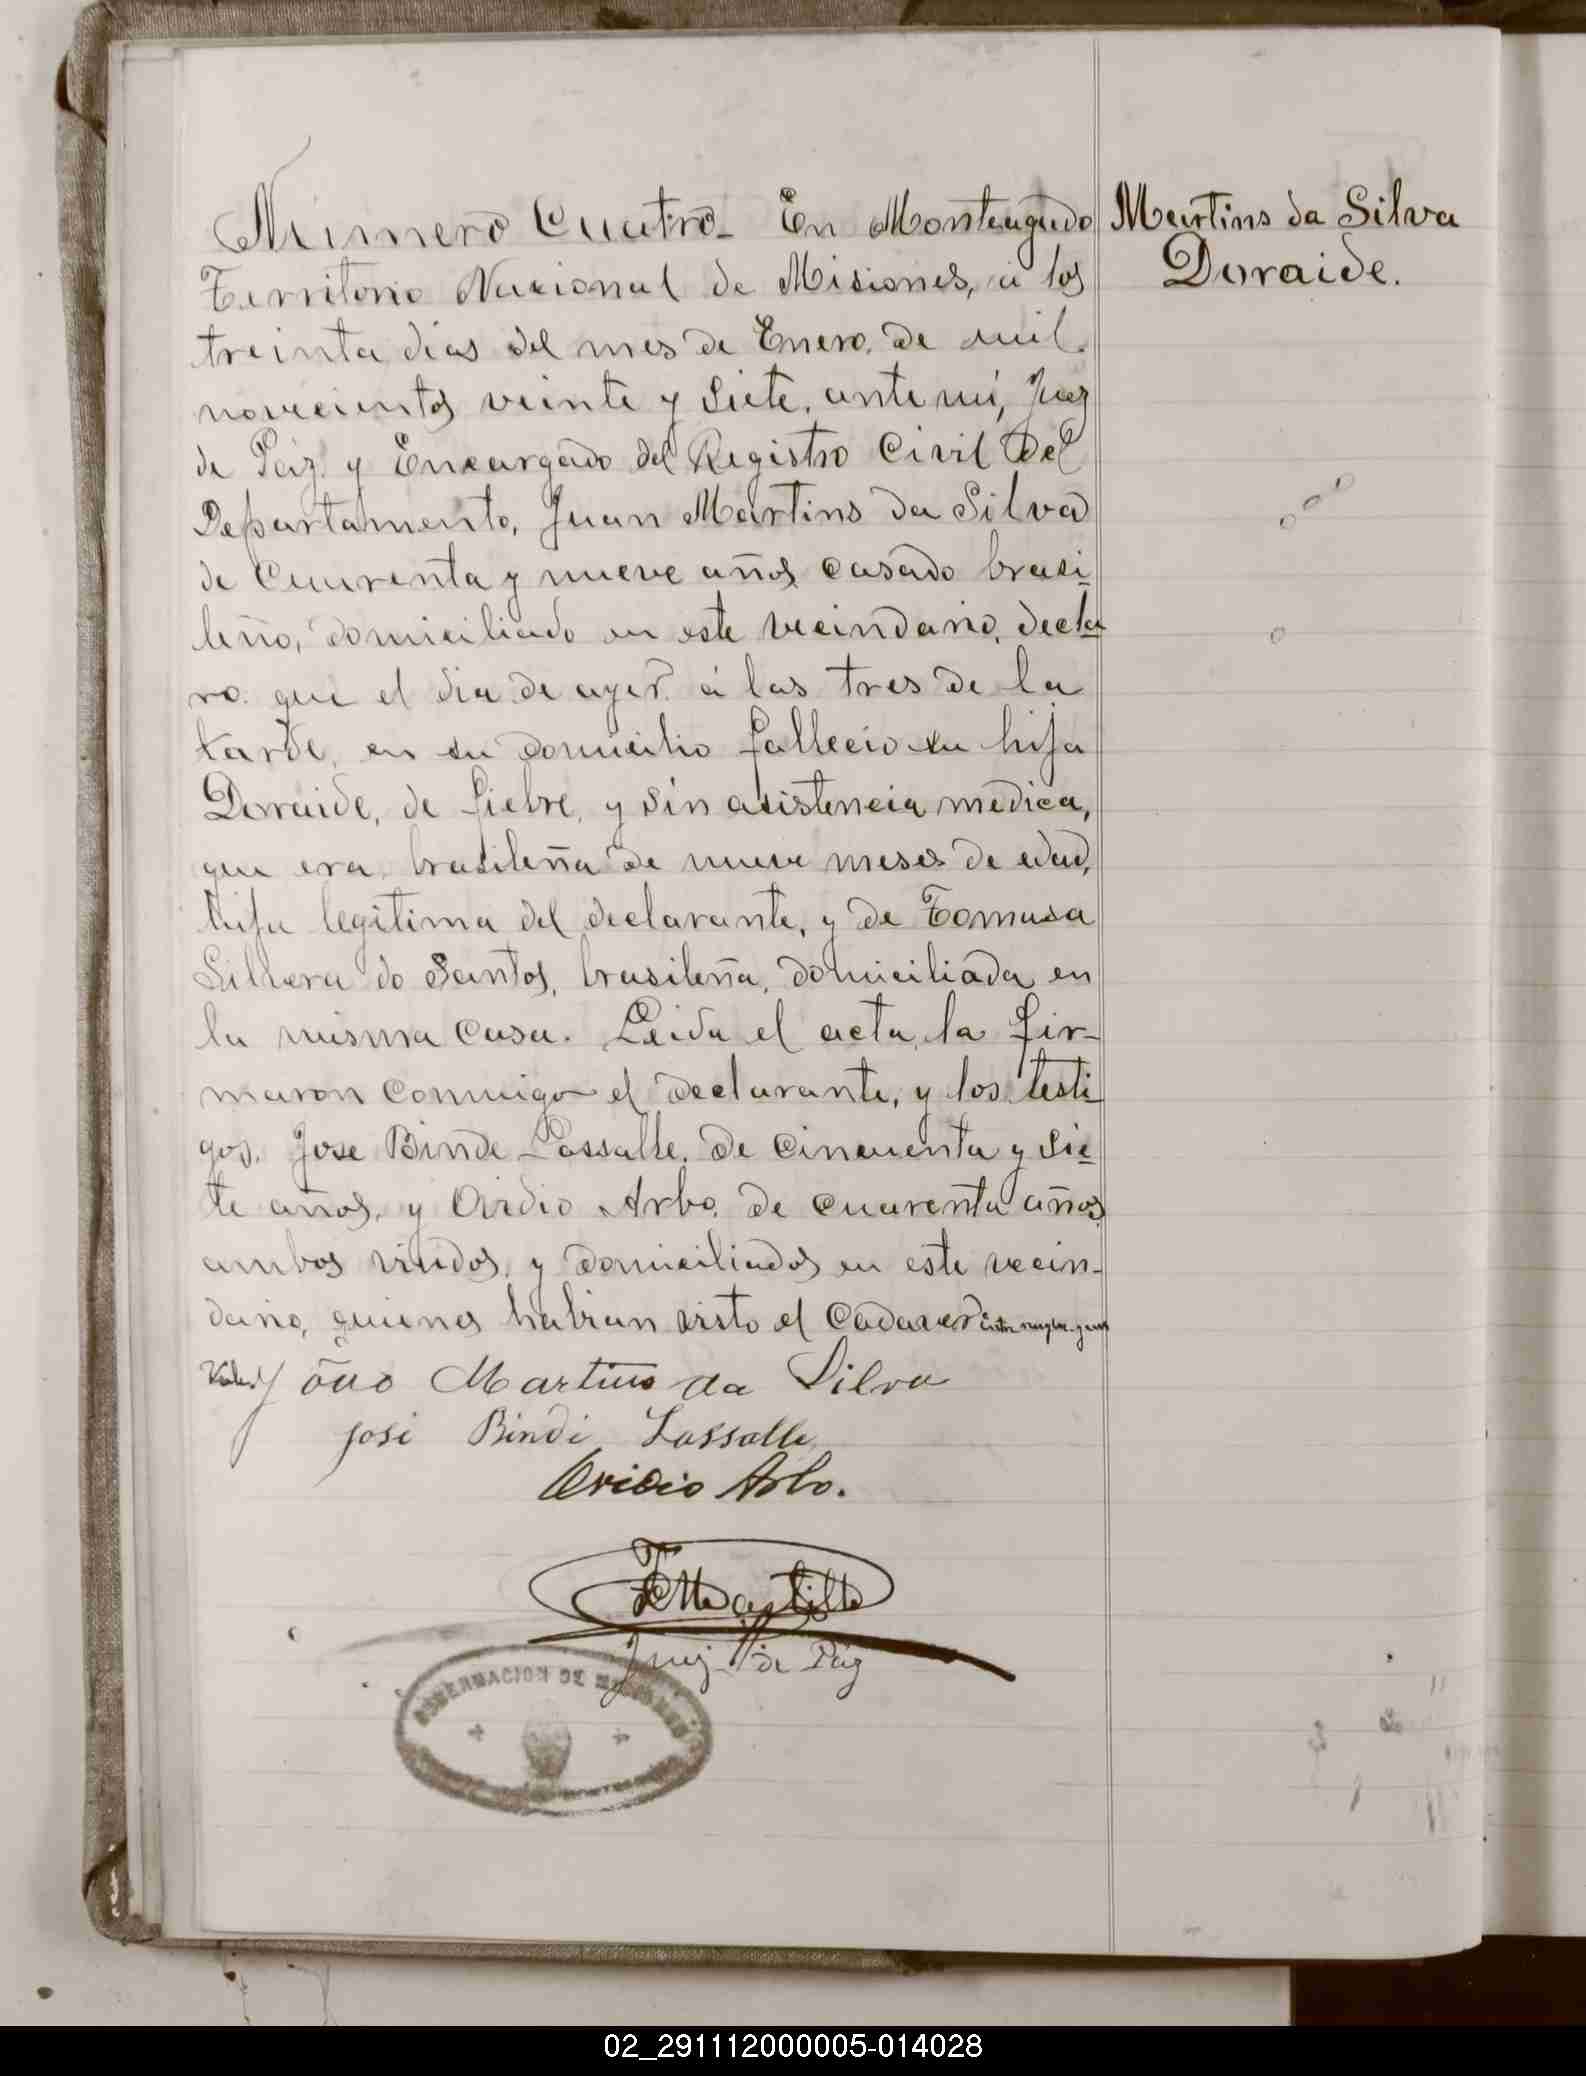 Numero Cuatro_ En Monteagudo
Territorio Nacional de Misiones, á los
treinta dias del mes de Enero. de mil.
novecientos veinte y siete. ante mí, Juez
de Páz. y Encargado del Registro Civil Del
Departamento, Juan Martins da Silva
de Cuarenta y nueve años casado brasi_
leño, domiciliado en este vecindario, decla_
ro. que el dia de ayer. á las tres de la
tarde, en su domicilio fallecio su hija
Doraide, de fiebre, y sin asistencia medica,
que era brasileña de nueve meses de edad,
hija legitima del declarante, y de Tomasa
Silvera do Santos, brasileña, domiciliada en
la misma Casa. Leida el acta, la fir-
maron conmigo el declarante, y los testi_
gos. Jose Binde Lassalle. de cincuenta y sie_
te años. y Ovidio Arbo. de cuarenta años
ambos viudos, y domiciliados en este vecin-
dario, quienes habian visto el Cadaver
Vale. João Martins da Silva
José Bindé Lassalle
Ovidio Arbo.
Juez de Páz
GOBERNACION DE MISIONES
Martins da Silva
Doraide.
02_291112000005-014028